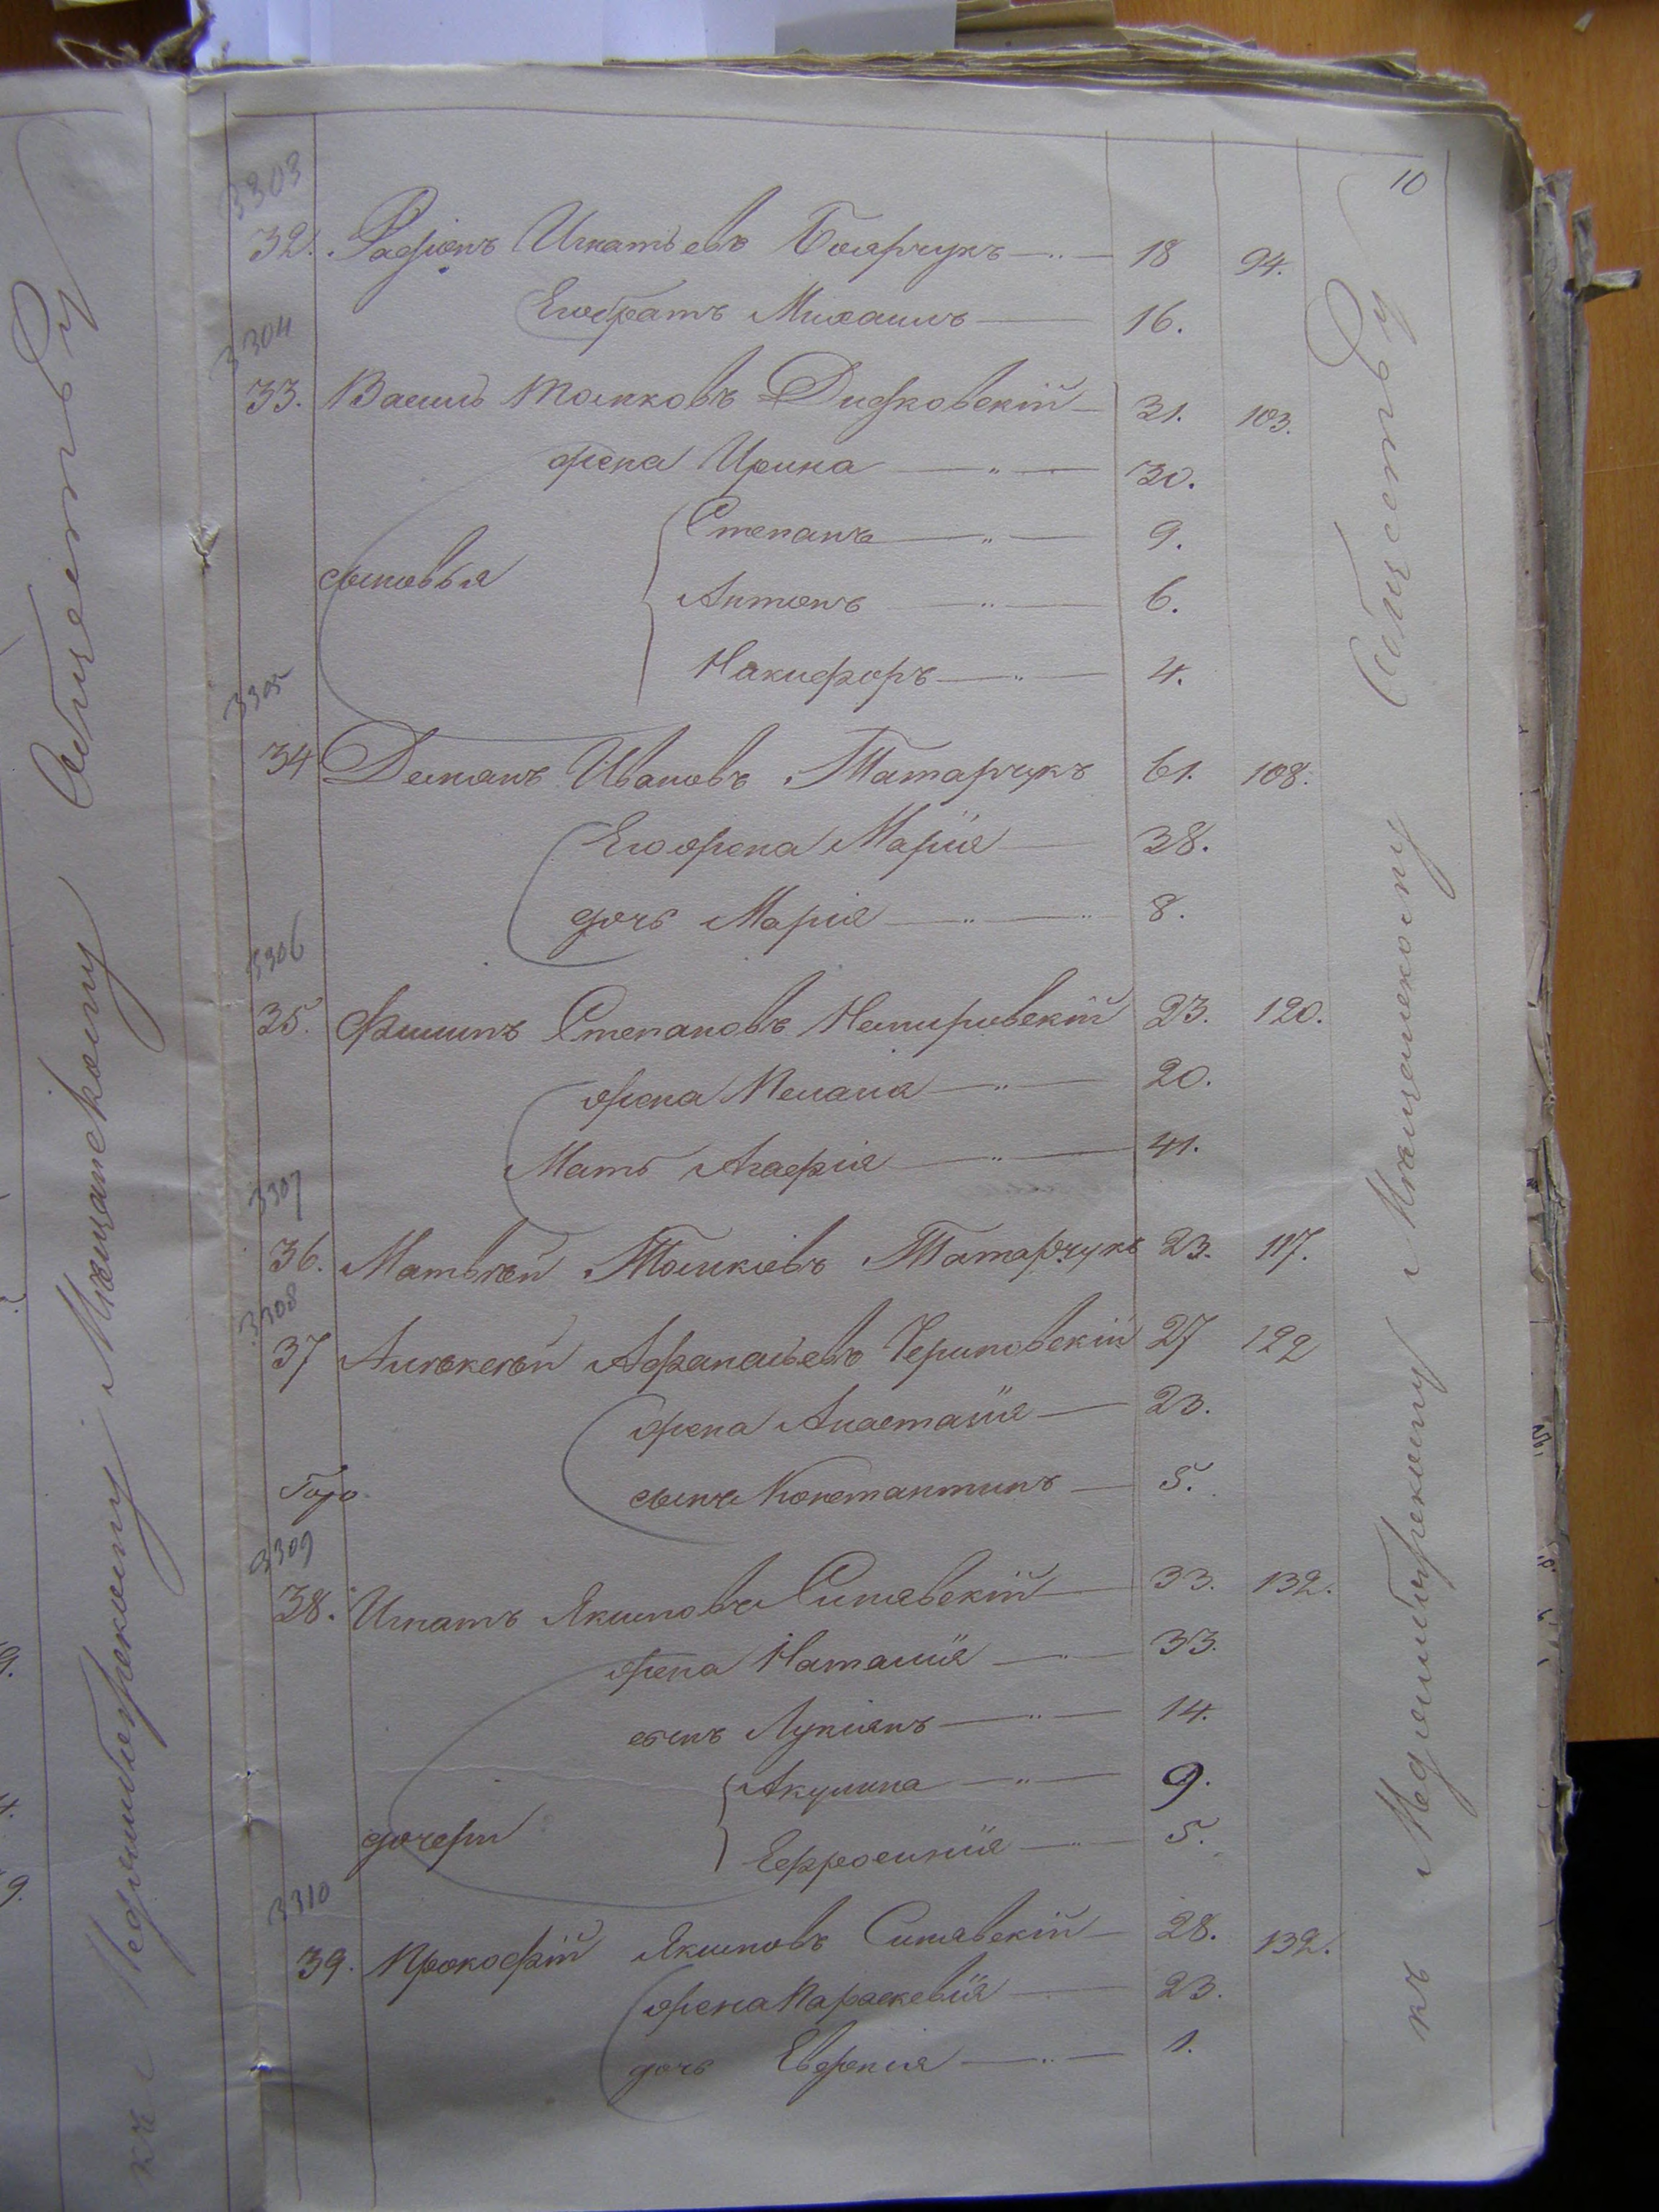 10
3303
32. Радіонъ Игнатьевъ Боярчукъ 18 94.
Его братъ Михаилъ 16.
3304
33. Василь Томковъ Дидковскій 31. 103.
жена Ирина 30.
Степанъ 9.
сыновья Антонъ 6.
Никифоръ 4.
3305
34 Демянъ Ивановъ Татарчукъ 61. 108.
Его жена Марія 38.
дочь Марія 8.
3306
35. Филипъ Степановъ Немировскій 23. 120.
жена Пелагия 20.
Мать Агафія 41.
3307
36. Матвѣй Томковъ Татарчукъ 23. 117.
3308
37 Алѣксѣй Афанасьевъ Черниовскій 27 122
жена Анастасія 23.
сынъ Константинъ 5.
3309
38. Игнатъ Якимовъ Синявскій 33. 132.
жена Наталія 33.
сынъ Лукіянъ 14.
Акулина 9.
дочери
Ефросинія 5.
3310
39. Прокофій Якимовъ Синявскій 28. 132.
жена Параскевія 23.
дочь Евдокія 1.
къ Меджибожскому Мѣщанскому Обществу
къ Меджибожскому Мѣщанскому Обществу